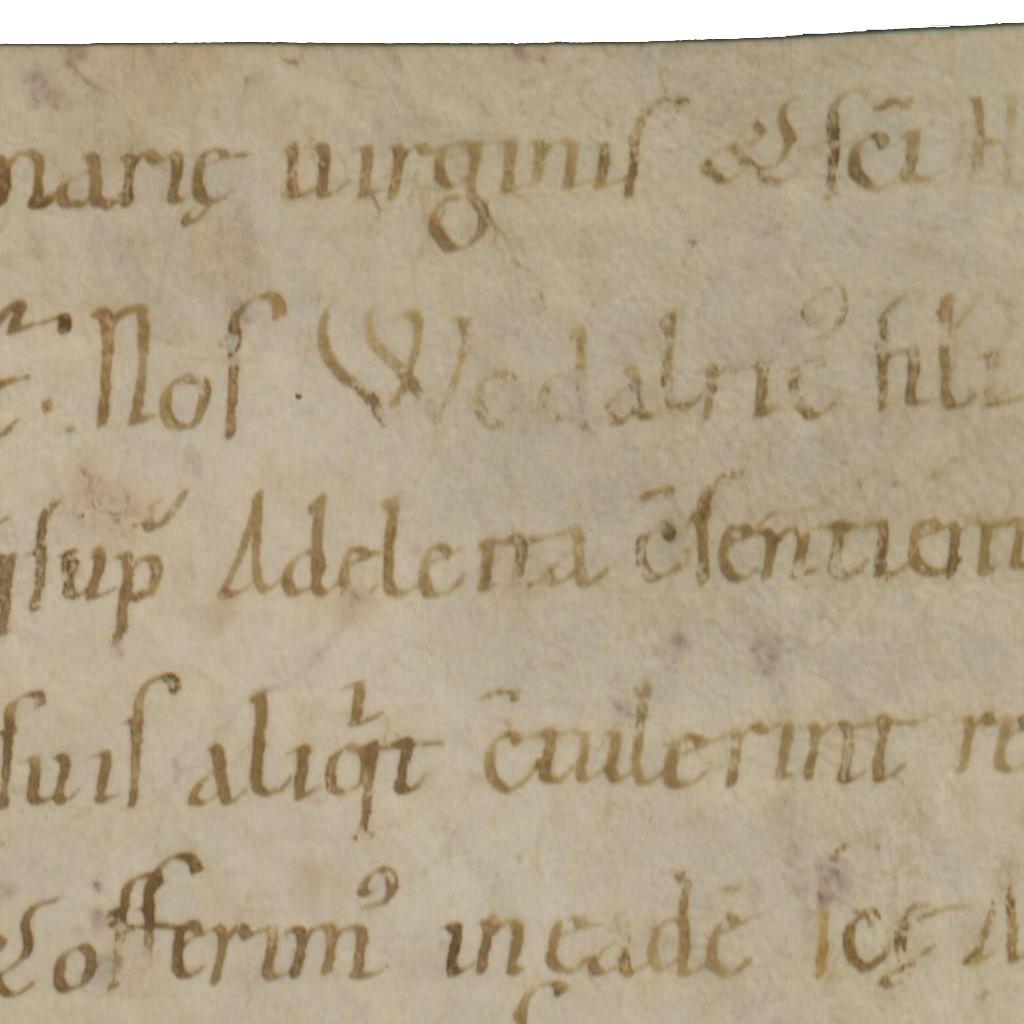 marię uirginis & sc̄i
Nos Wodalricꝰ filiꝰ
qsup̄ Adeleita c̄sentient
suis aliqͥt c̄tulerint re
& offerimꝰ in eadē scę